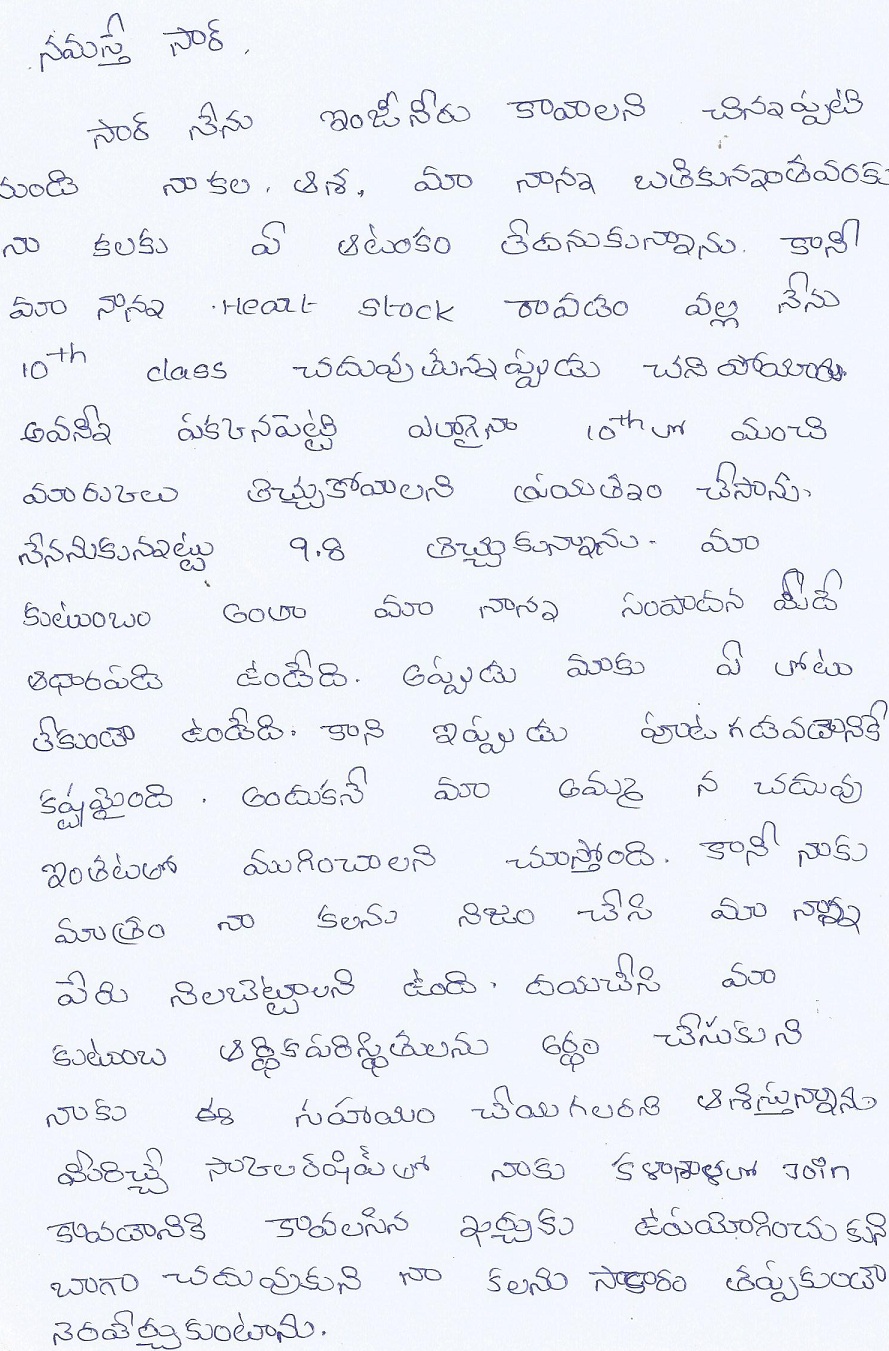 నమస్తే సార్.
సార్ నేను ఇంజీనీరు కావాలని చిన్నప్పటి
నుండి నా కల, ఆశ, మా నాన్న బతికున్నంతవరకు
నా కలకు ఏ ఆటంకం లేదనుకున్నాను. కానీ
మా నాన్న Heart stock రావడం వల్ల నేను
10th class చదువుతున్నప్పుడు చనిపోయారు.
అవన్నీ పక్కనపెట్టి ఎలాగైనా 10th లో మంచి
మార్కులు తెచ్చుకోవాలని ప్రయత్నం చేసాను.
నేననుకున్నట్టు 9.8 తెచ్చుకున్నాను. మా
కుటుంబం అంతా మా నాన్న సంపాదన మీదే
ఆధారపడి ఉండేది. అప్పుడు మాకు ఏ లోటు
లేకుండా ఉండేది. కాని ఇప్పుడు పూట గడవడానికే
కష్టమైంది. అందుకనే మా అమ్మ న చదువు
ఇంతటలో ముగించాలని చూస్తోంది. కానీ నాకు
మాత్రం నా కలను నిజం చేసి మా నాన్న
పేరు నిలబెట్టాలని ఉంది. దయచేసి మా
కుటుంబ ఆర్థికపరిస్థితులను అర్థం చేసుకుని
నాకు ఈ సహాయం చేయగలరని ఆశిస్తున్నాను
మీరిచ్చే స్కాలర్‌షిప్‌లో నాకు కళాశాలలో Join
కావడానికి కావలసిన ఖర్చుకు ఉపయోగించుకుని
బాగా చదువుకుని నా కలను సాకారం తప్పకుండా
నెరవేర్చుకుంటాను.